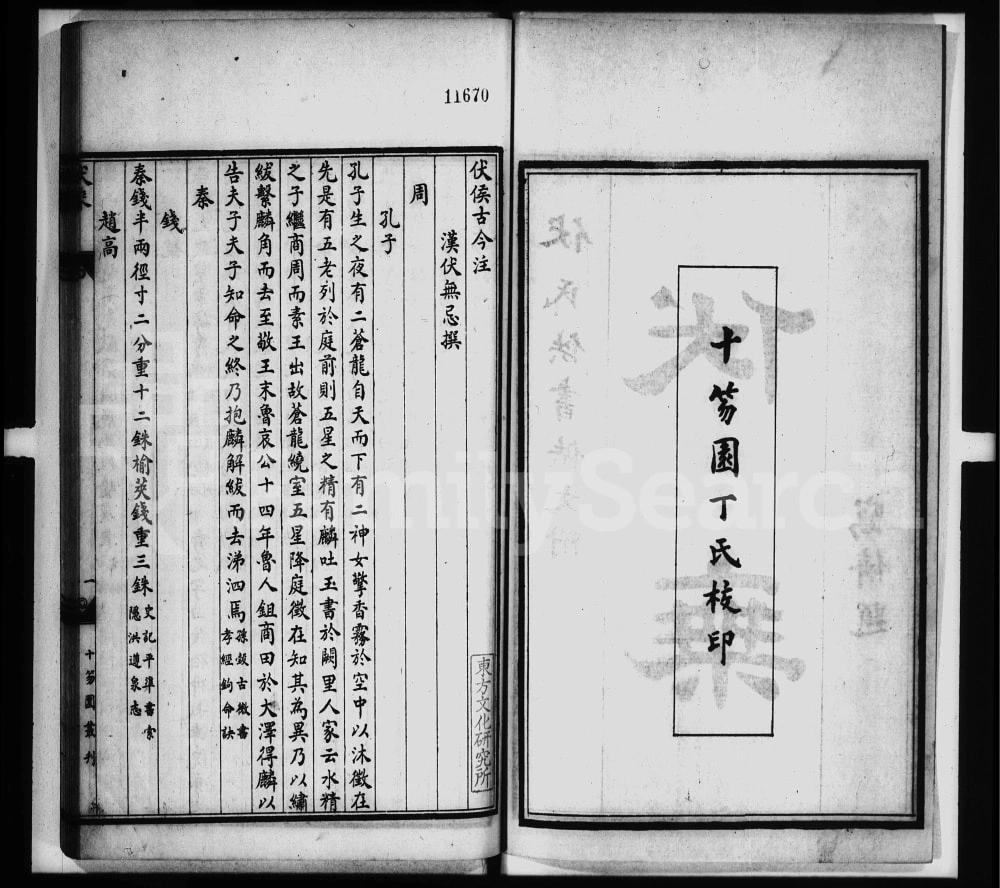 十笏園丁氏校印
11670
伏侯古今注
漢伏無忌撰
周
孔子
孔子生之夜有二蒼龍自天而下有二神女擎香霧於空中以沐徵在
先是有五老列於庭前則五星之精有麟吐玉書於闕里人家云水精
之子繼商周而素王出故蒼龍繞室五星降庭徵在知其為異乃以繡
紱繫麟角而去至敬王末魯哀公十四年魯人鉏商田於大澤得麟以
告夫子夫子知命之終乃抱麟解紱而去涕泗焉孫瑴古微書
孝經鉤命訣
秦
錢
秦錢半兩徑寸二分重十二銖榆莢錢重三銖史記平準書索
隱洪遵泉志
趙高
一
十笏園叢刊
東方文化研究所
FamilySearch